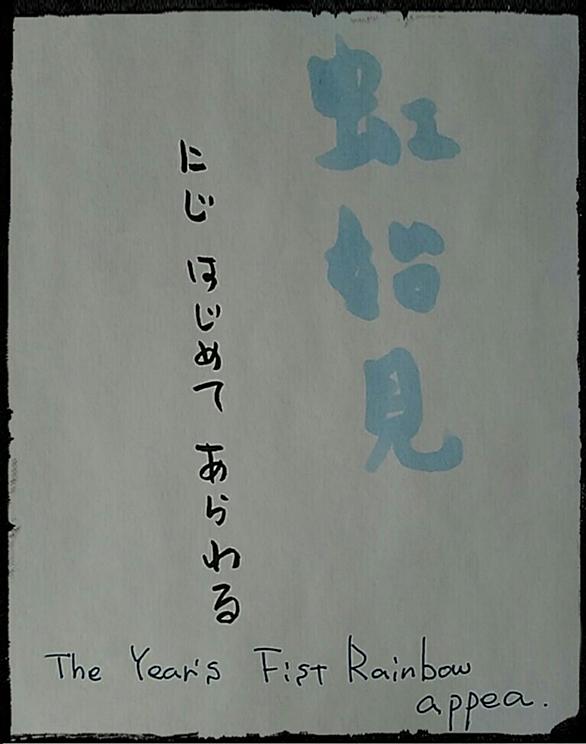 虹始見
にじ はじめて あらわる
The Year's Fist Rainbow
appea.